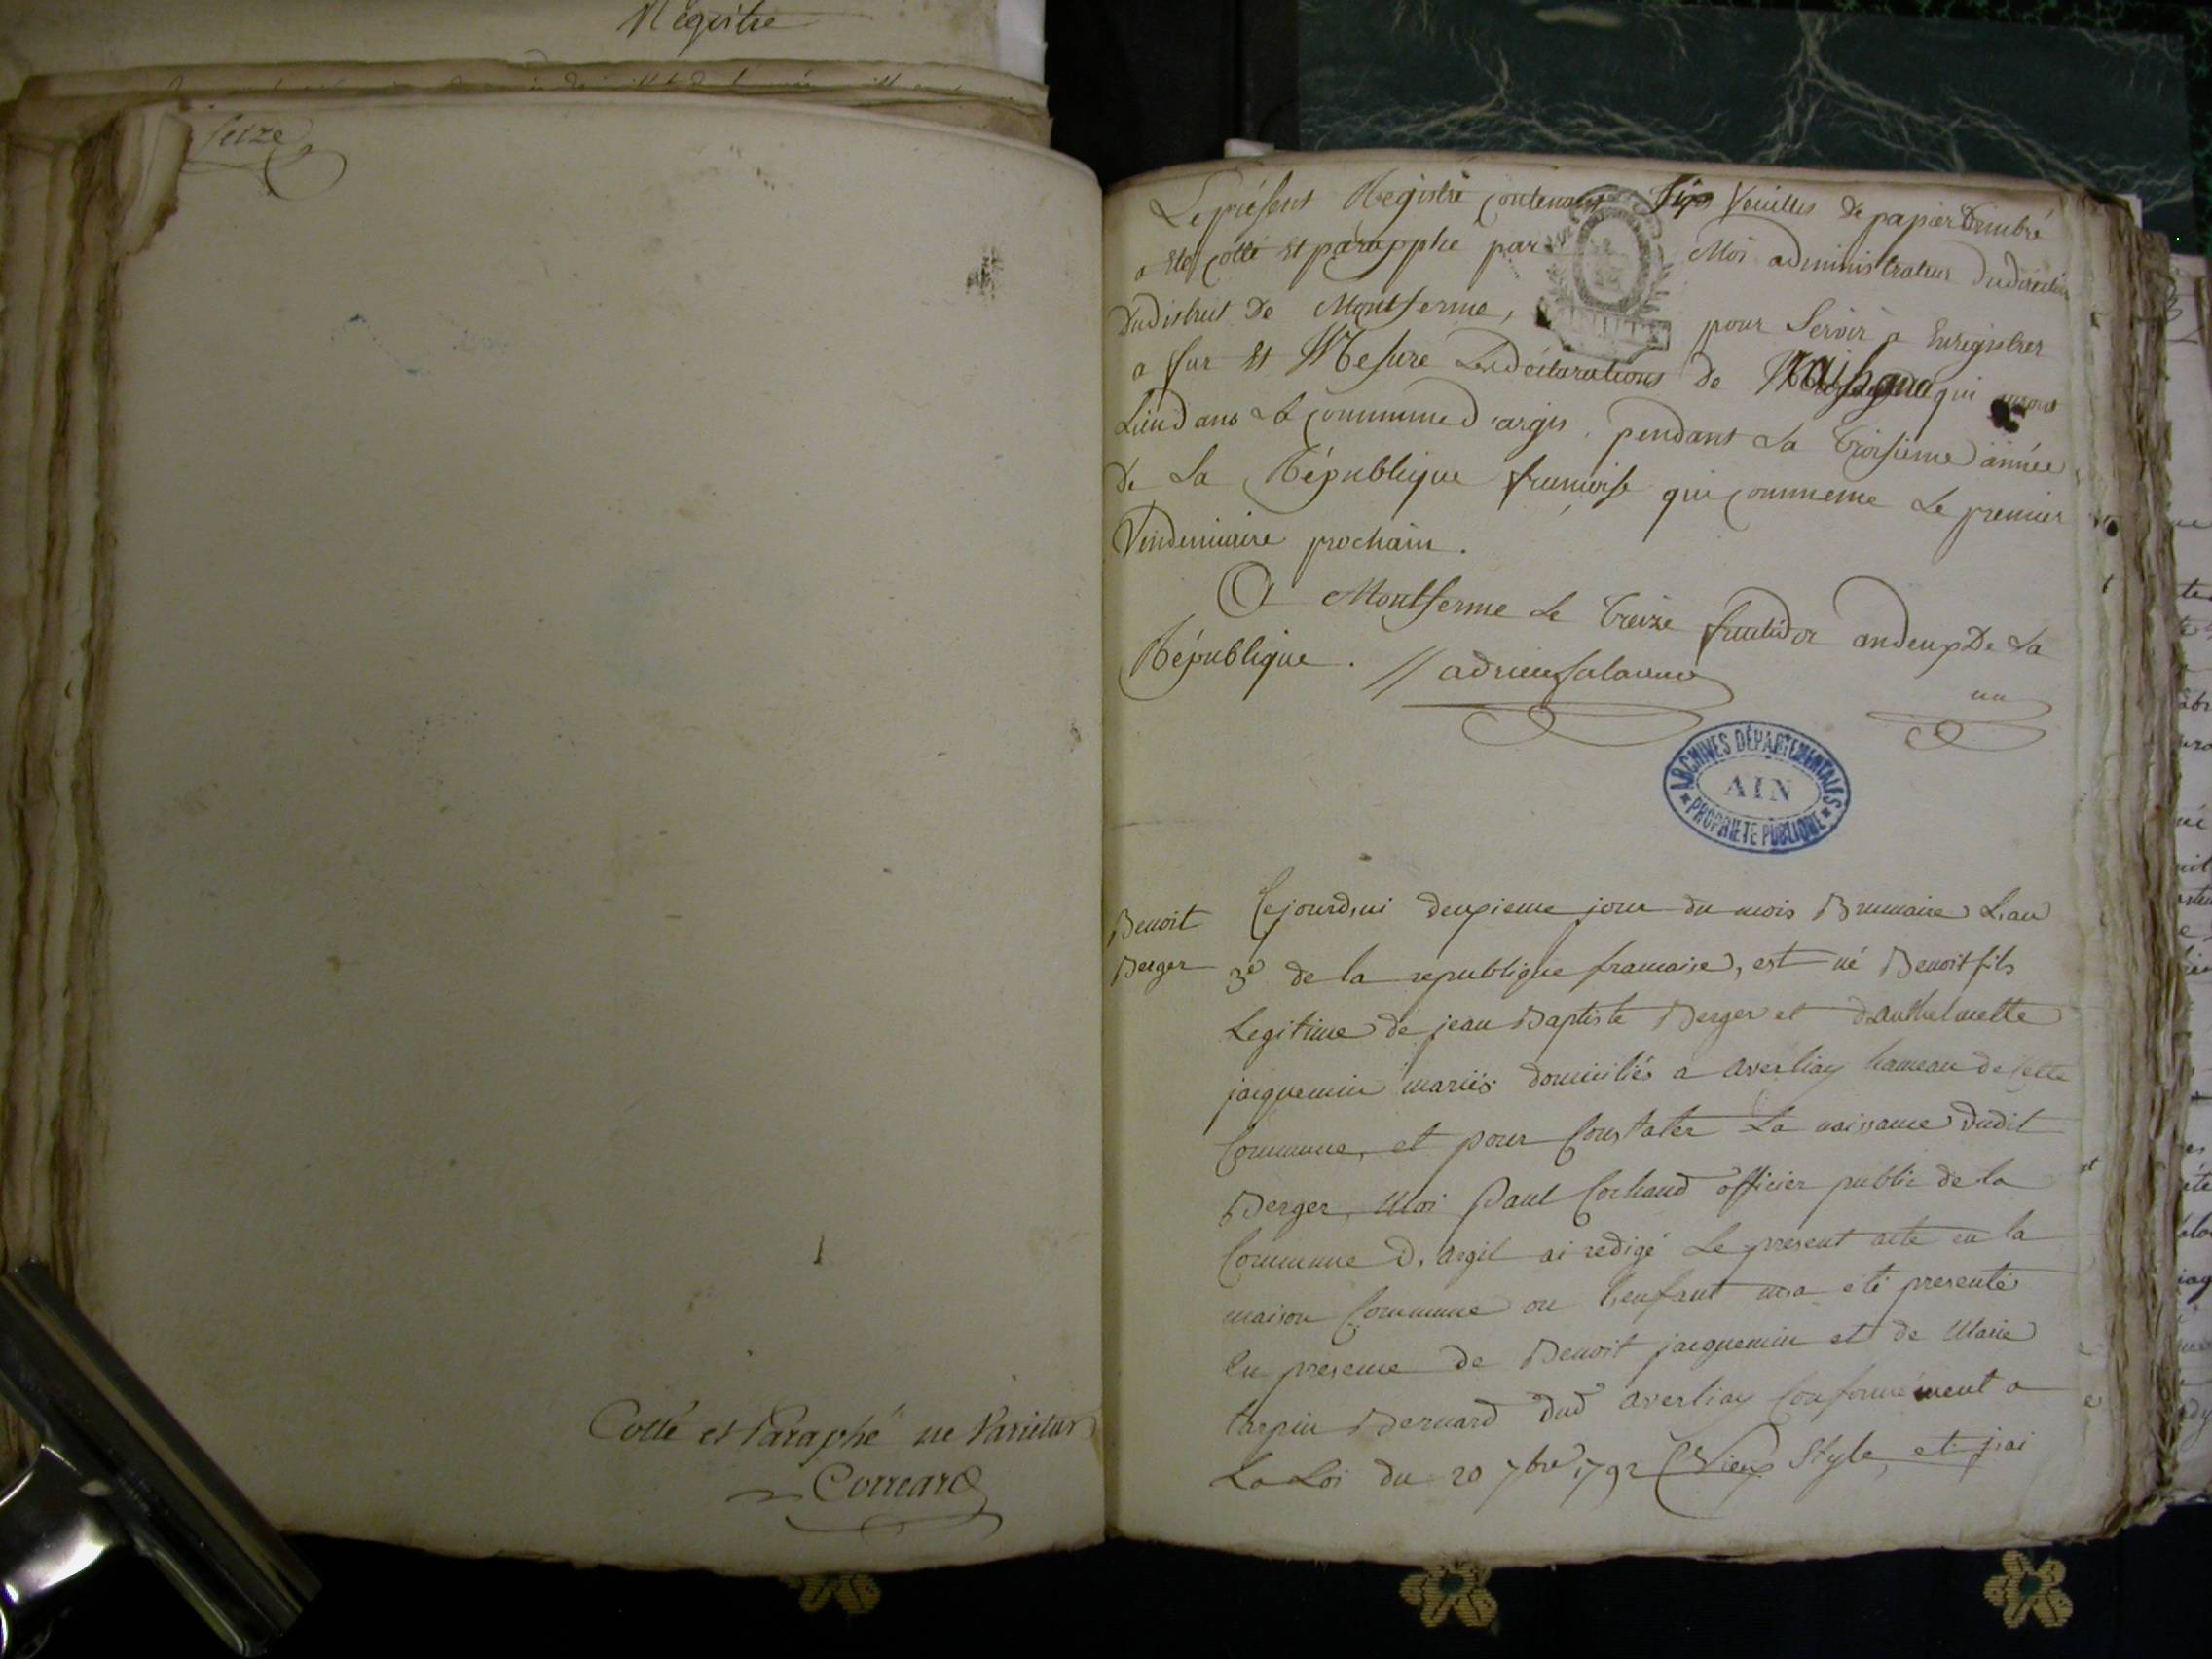 Registre
seize
Cotté et Paraphé ne Varietur
Correard
Le présent Registre contenant six feuilles De papier timbré
a été cotté et parapphe par Moi administrateur du directoire
du district De Montferme, pour Servir a Enregistrer
a fur Et Mesure Les déclarations de Naissance qui auront
Lieu dans La Commune d'argis pendant La troisieme année
de La République francoise qui commence Le premier
Vendemiaire prochain.
A Montferme Le treize fructidor an deux De La
République. // adrien
un
ARCHIVES DÉPARTEMENTALES
AIN
PROPRIÉTÉ PUBLIQUE
Benoit
Berger
Cejourd,ui deuxieme jour du mois Brumaire L,an
3e de la republique francaise, est né Benoit fils
Legitime de jean Baptiste Berger et d,Anthelmette
jacquemin mariés domiciliés a averliay hameau de Cette
Commune, et pour Constater La naissance dudit
Berger, Moi Paul Cochaud officier public de la
Commune d,argil ai redigé Le present acte en la
maison Commune ou L,enfant m,a été presenté
En presence de Benoit jacquemin et de Marie
tarpin Bernard dud averliay Conformément a
La Loi du 20 7bre 1792 (Vieux Style, et j,ai